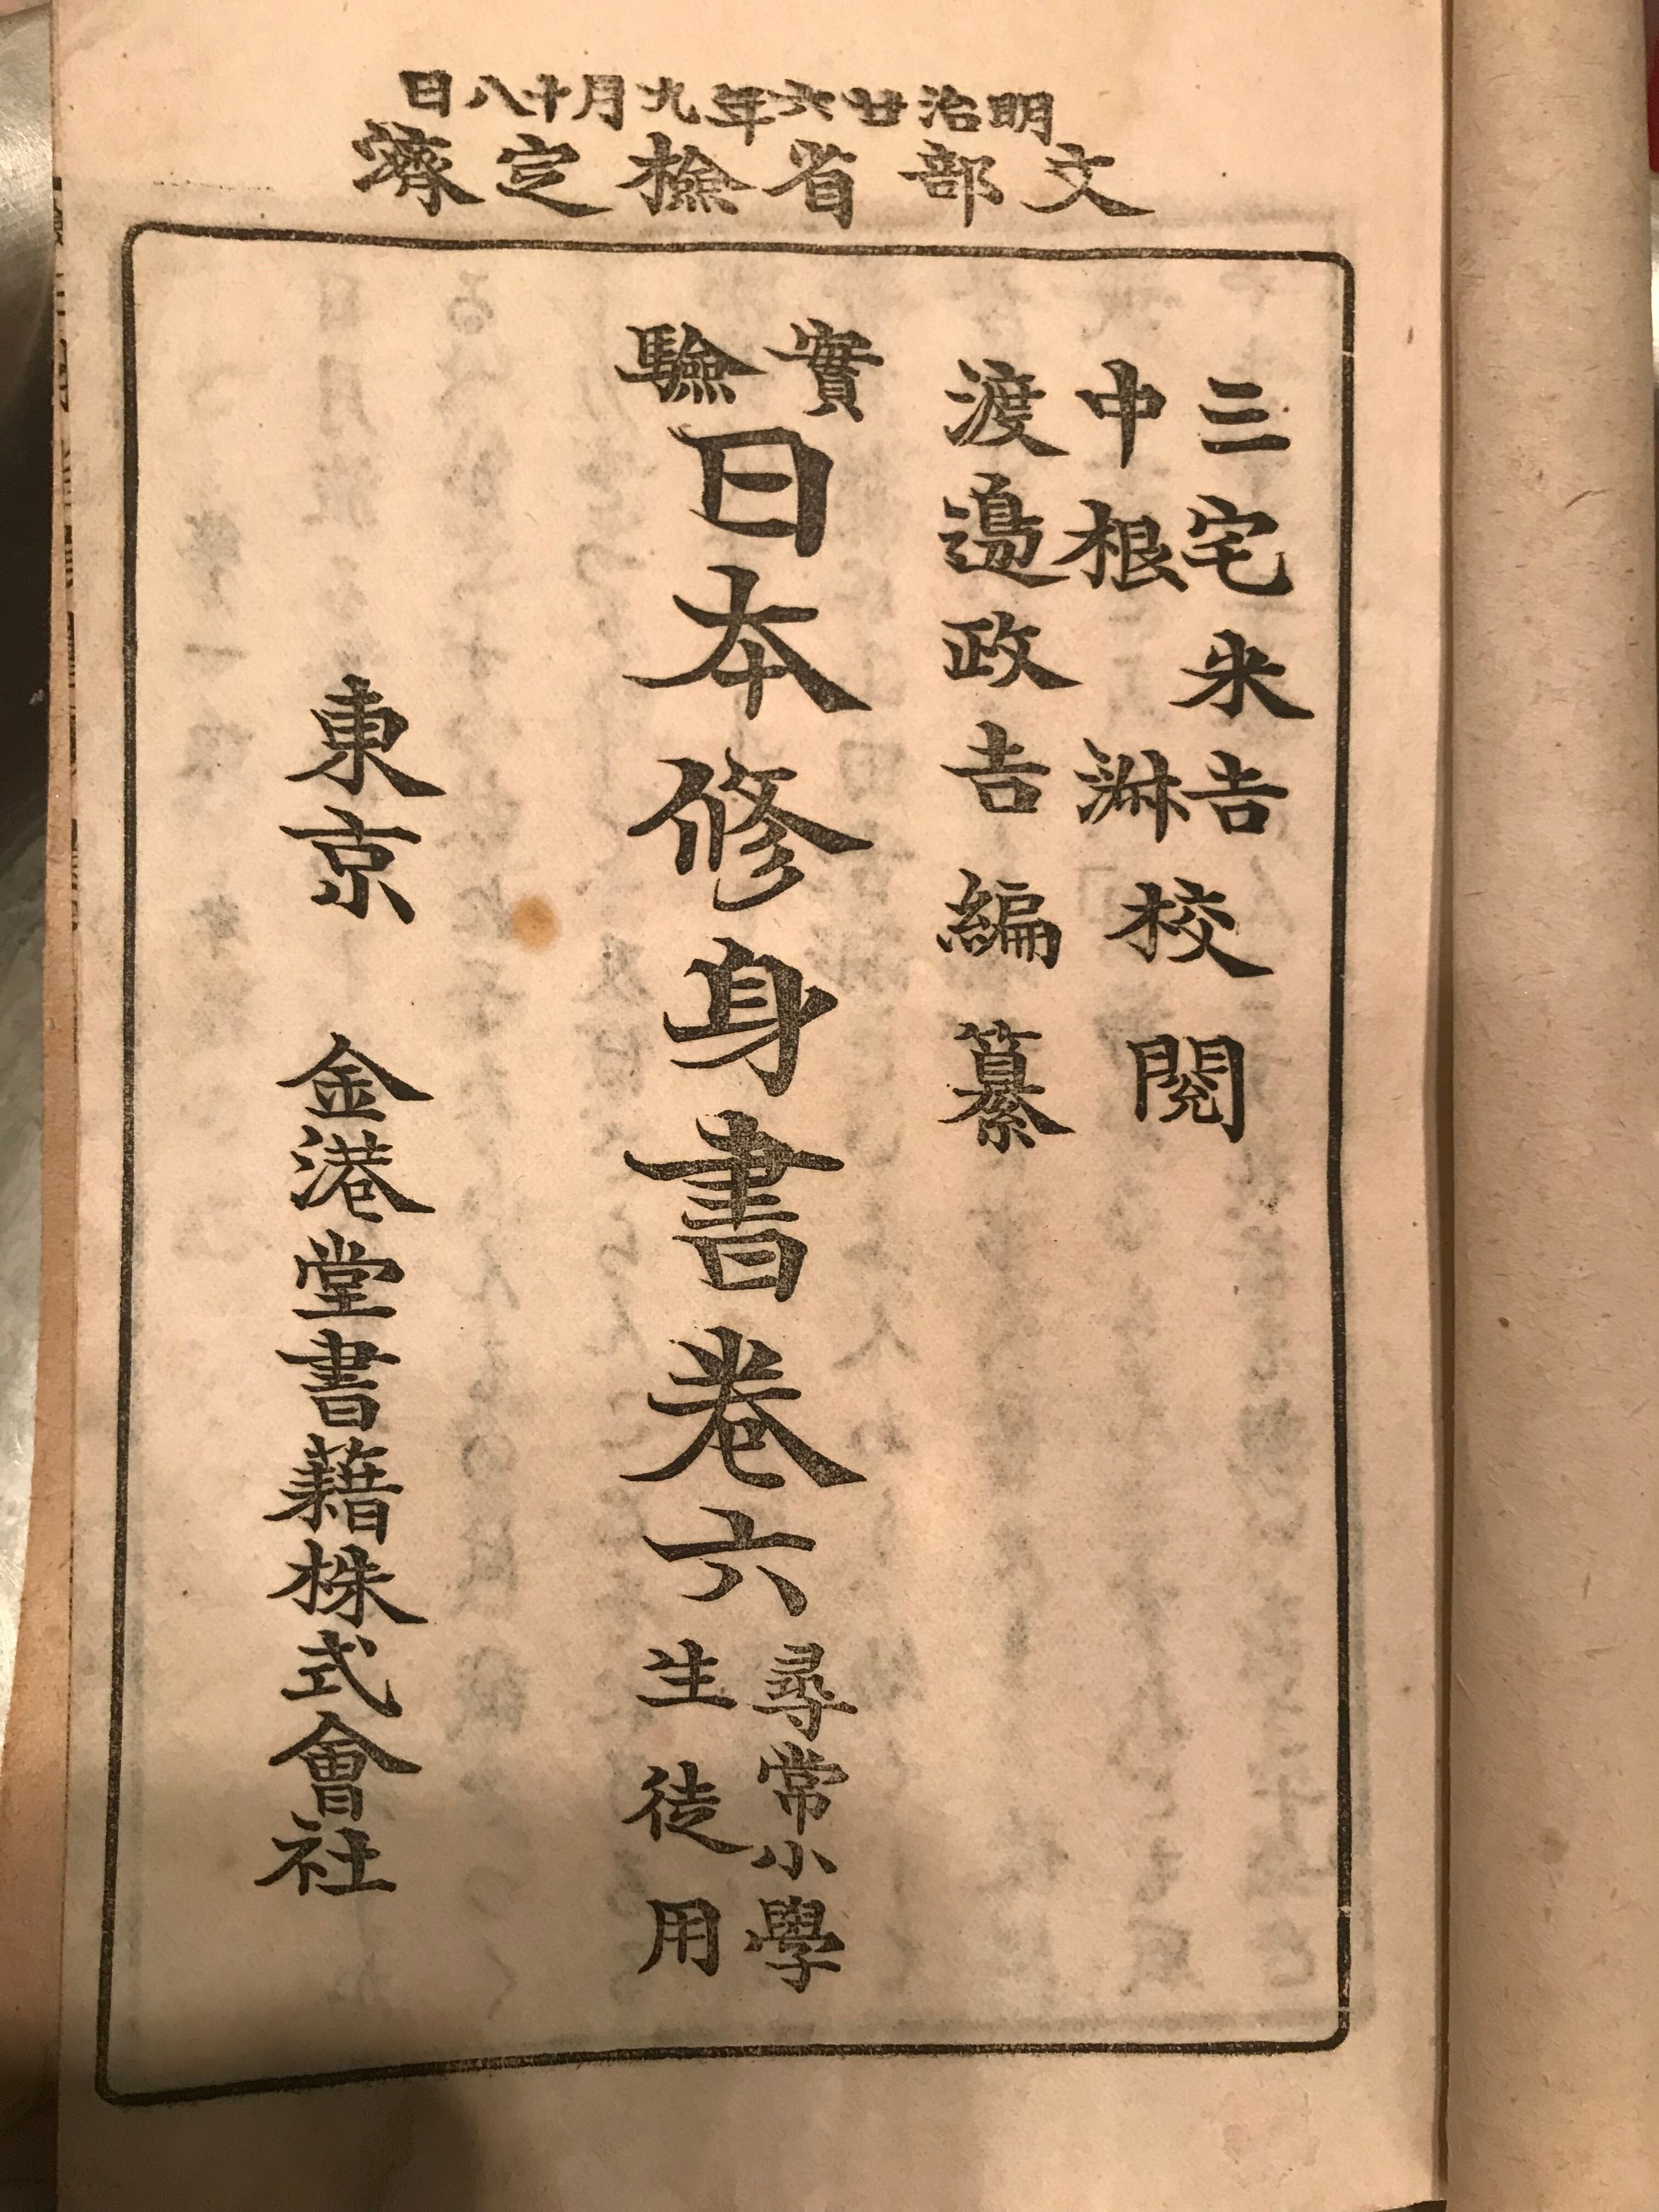 明治廿六年九月十八日
文部省檢定濟
三宅米吉
中根淑
校閱
渡邉政吉編纂
實驗
日本修身書卷六
尋常小學
生徒用
東京 金港堂書籍株式會社